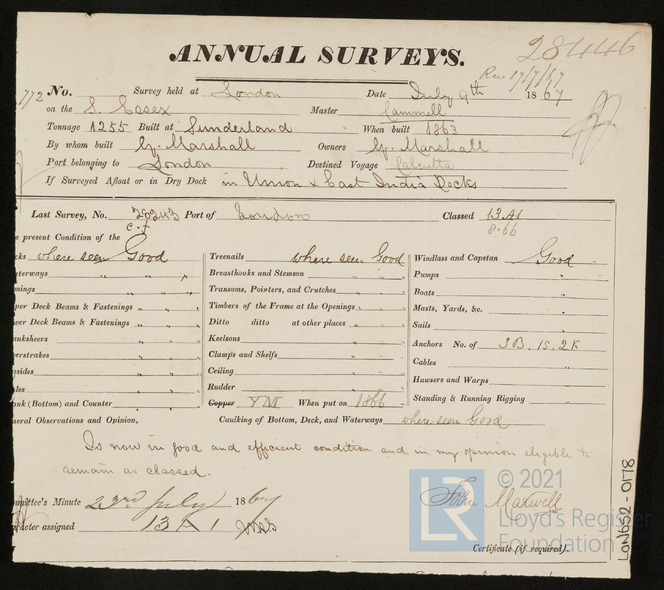 28446
ANNUAL SURVEYS.
Rec 17/7/67
772 No. Survey held at London Date July 9th 1867
on the S. Essex Master Cammell
Tonnage 1255 Built at Sunderland When built 1863
By whom built G. Marshall Owners G. Marshall
Port belonging to London Destined Voyage Calcutta
If Surveyed Afloat or in Dry Dock in Union & East India Docks
Last Survey, No. 26243 Port of London Classed 13.A1
8.66
e present Condition of the
cks where seen Good Treenails where seen Good Windlass and Capstan Good
aterways " " " Breasthooks and Stemson " Pumps "
mings " " Transoms, Pointers, and Crutches " Boats "
per Deck Beams & Fastenings " " Timbers of the Frame at the Openings " Masts, Yards, &c. "
wer Deck Beams & Fastenings " " Ditto ditto at other places " Sails "
anksheers " " Keelsons " Anchors No. of 3B. 1S. 2K
erstrakes " " Clamps and Shelfs " Cables "
sides " " Ceiling " Hawsers and Warps "
les " " Rudder " Standing & Running Rigging "
nk (Bottom) and Counter " Copper YM When put on 1866
neral Observations and Opinion, Caulking of Bottom, Deck, and Waterways where seen Good
Is now in good and efficient condition and in my opinion eligible to
remain as classed.
mmittee's Minute 23rd July 1867
aracter assigned 13 A 1
John Maxwell
Certificate (if required).
LR © 2021
Lloyd's Register
Foundation
LON652-0178